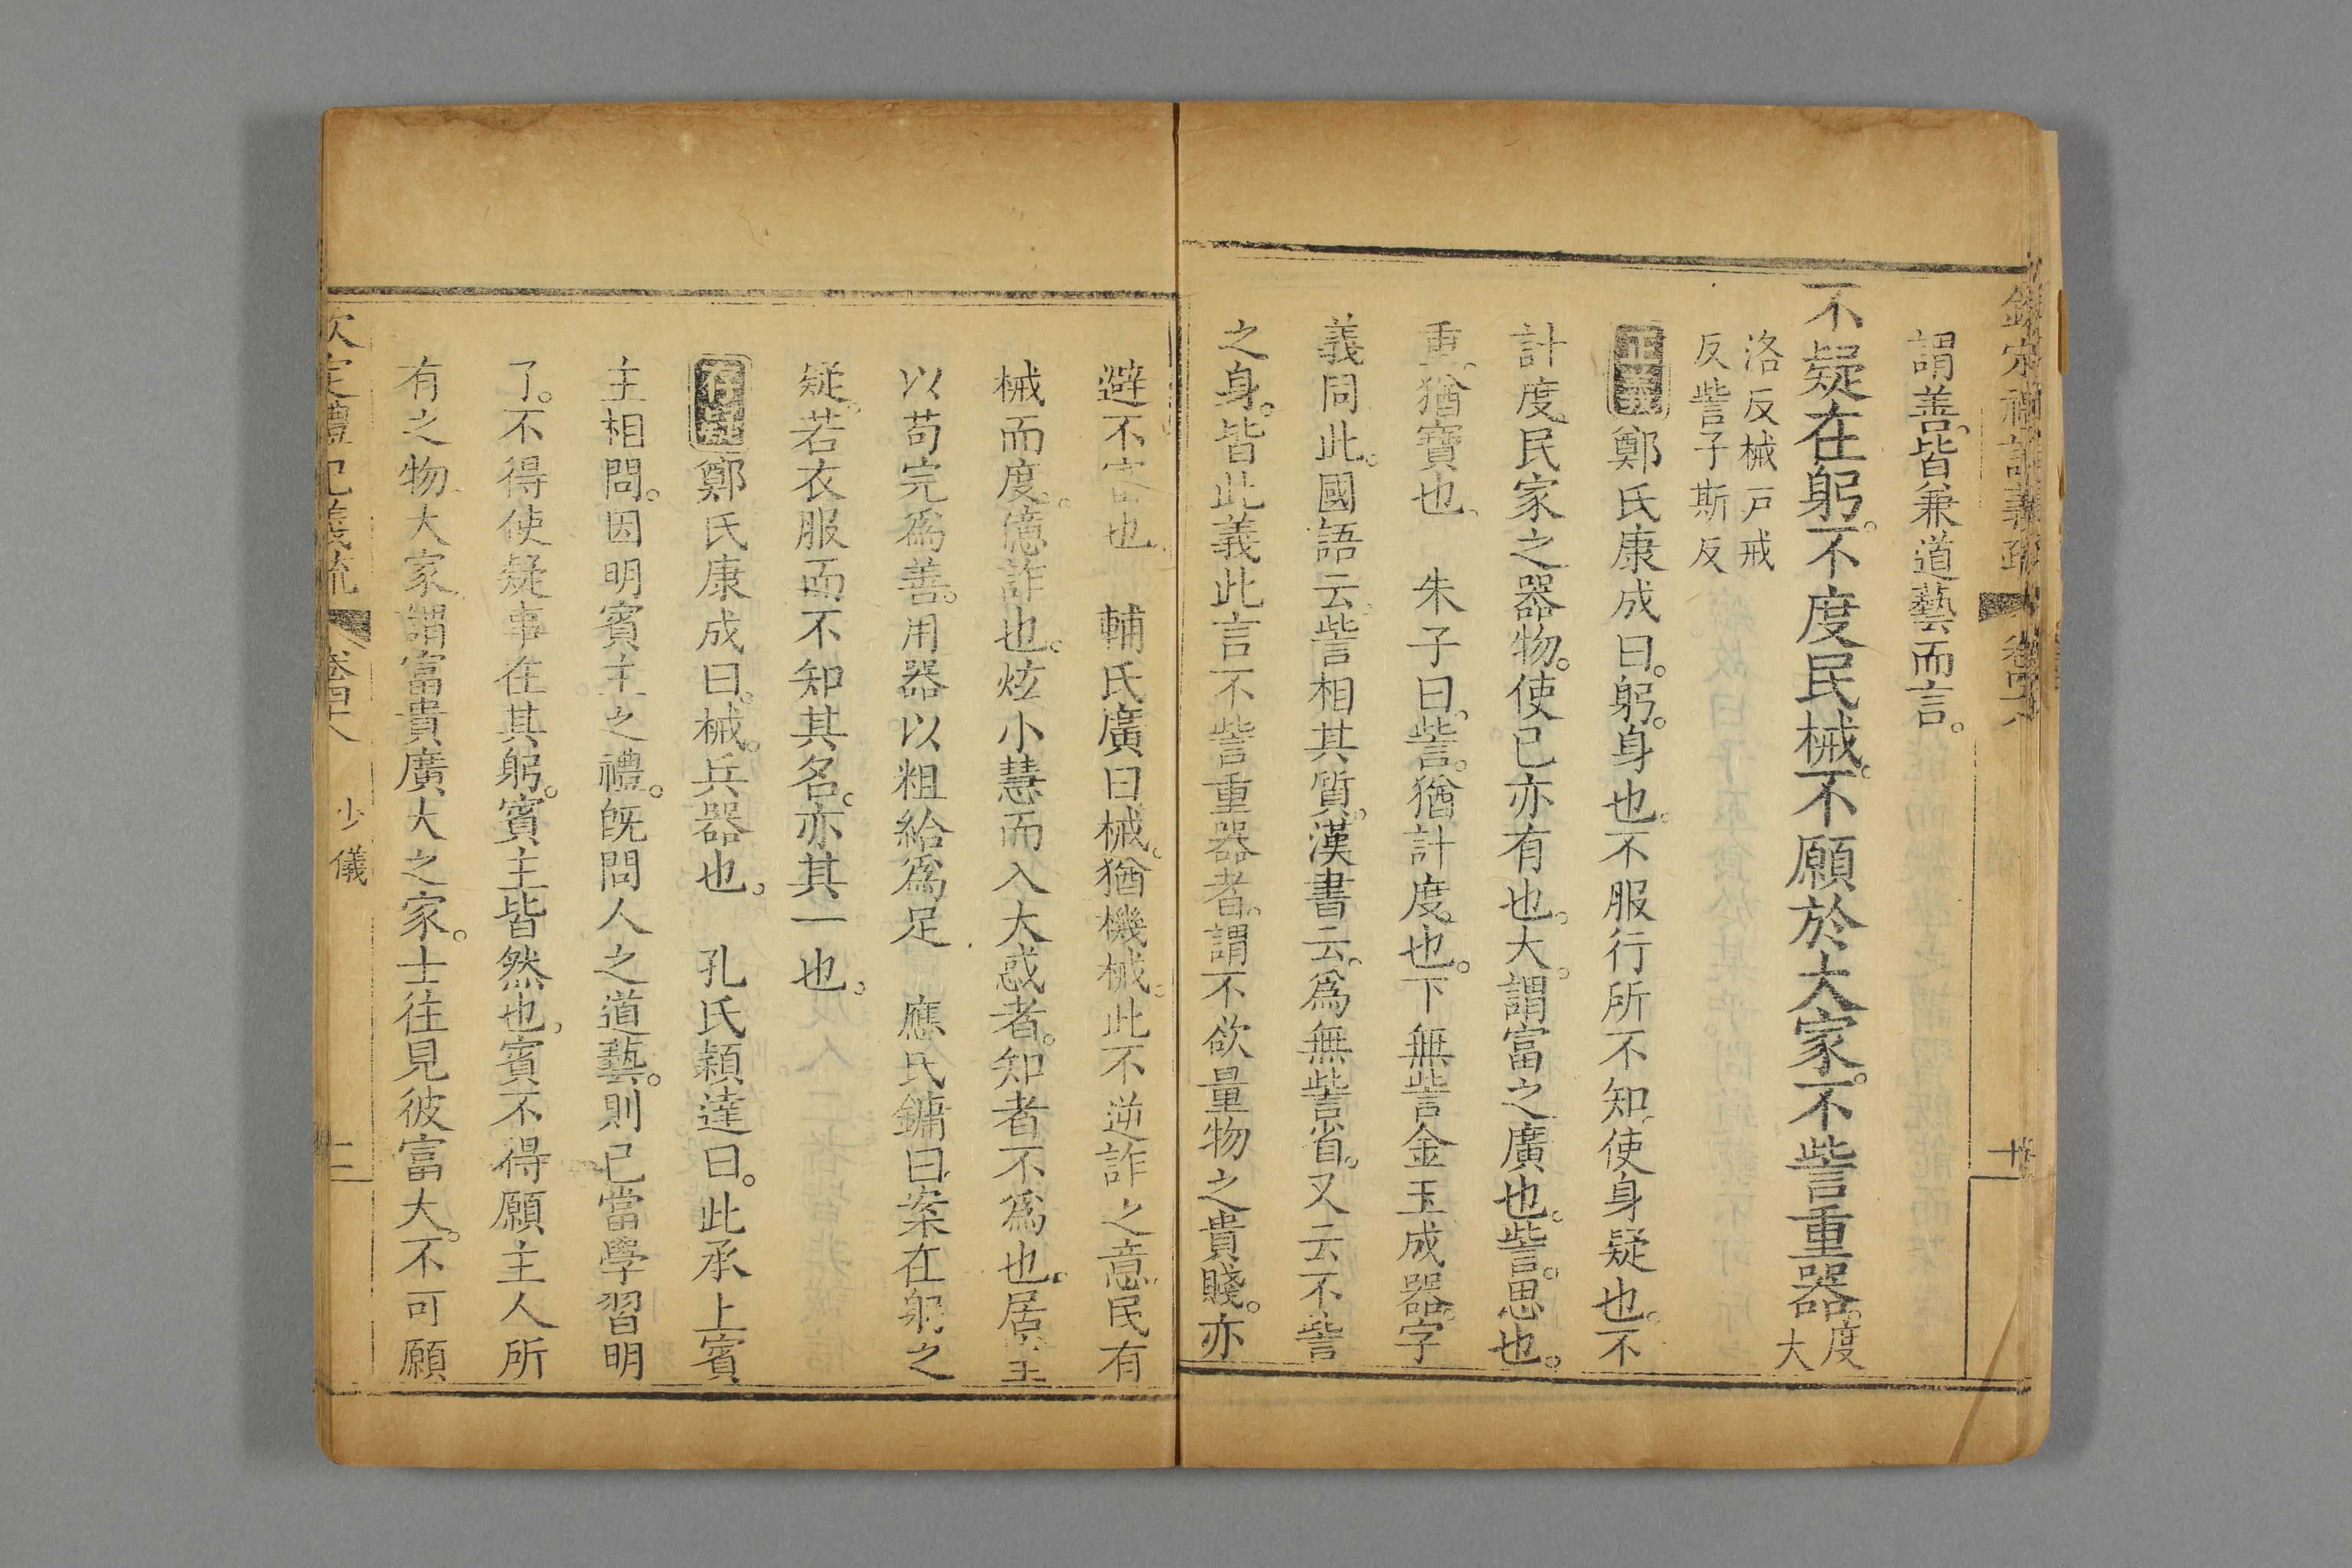 欽定禮記義疏 卷四十八
謂善。皆兼道藝而言。
不疑在躬。不度民械。不願於大家。不訾重器。度大
洛反械戸戒
反訾子斯反
正義鄭氏康成曰。躬。身也。不服行所不知。使身疑也。不
計度民家之器物。使已亦有也。大。謂富之廣也。訾。思也。
重。猶寶也。 朱子曰。訾。猶計度也。下無訾金玉成器。字
義同此。國語云。訾相其質。漢書云。為無訾省。又云不訾
之身。皆此義此言不訾重器者。謂不欲量物之貴賤。亦
避不審也 輔氏廣曰械。猶機械。此不逆詐之意。民有
械而度。億詐也。炫小慧而入大惑者。知者不為也。居室
以苟完為善。用器以粗給為足 應氏鏞曰案在躬之
疑。若衣服而不知其名。亦其一也。
存異鄭氏康成曰。械。兵器也。 孔氏穎達曰。此承上賓
主相問。因明賓主之禮。旣問人之道藝。則已當學習明
了。不得使疑事在其躬。賓主皆然也。賓不得願主人所
有之物。大家。謂富貴廣大之家。士往見彼富大。不可願
欽定禮記義疏 卷四十八 少儀